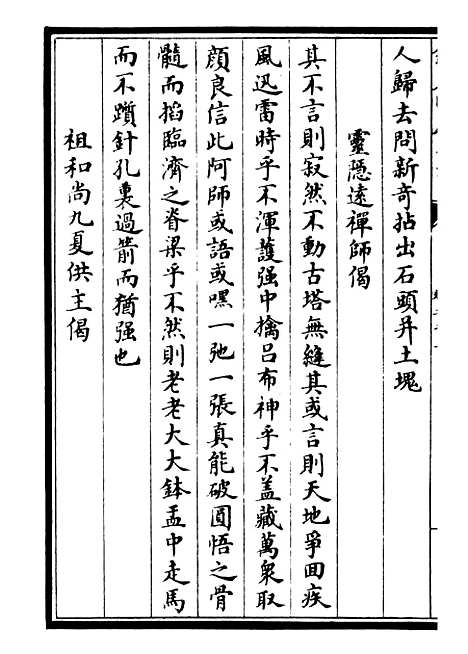 人歸去問新奇拈出石頭并土塊
靈隱遠禪師偈
其不言則寂然不動古塔無縫其或言則天地爭回疾
風迅雷時乎不渾護强中擒吕布神乎不盖藏萬衆取
顔良信此阿師或語或嘿一弛一張真能破圓悟之骨
髓而搯臨濟之脊梁乎不然則老老大大鉢盂中走馬
而不躓針孔裏過箭而猶强也
祖和尚九夏供主偈